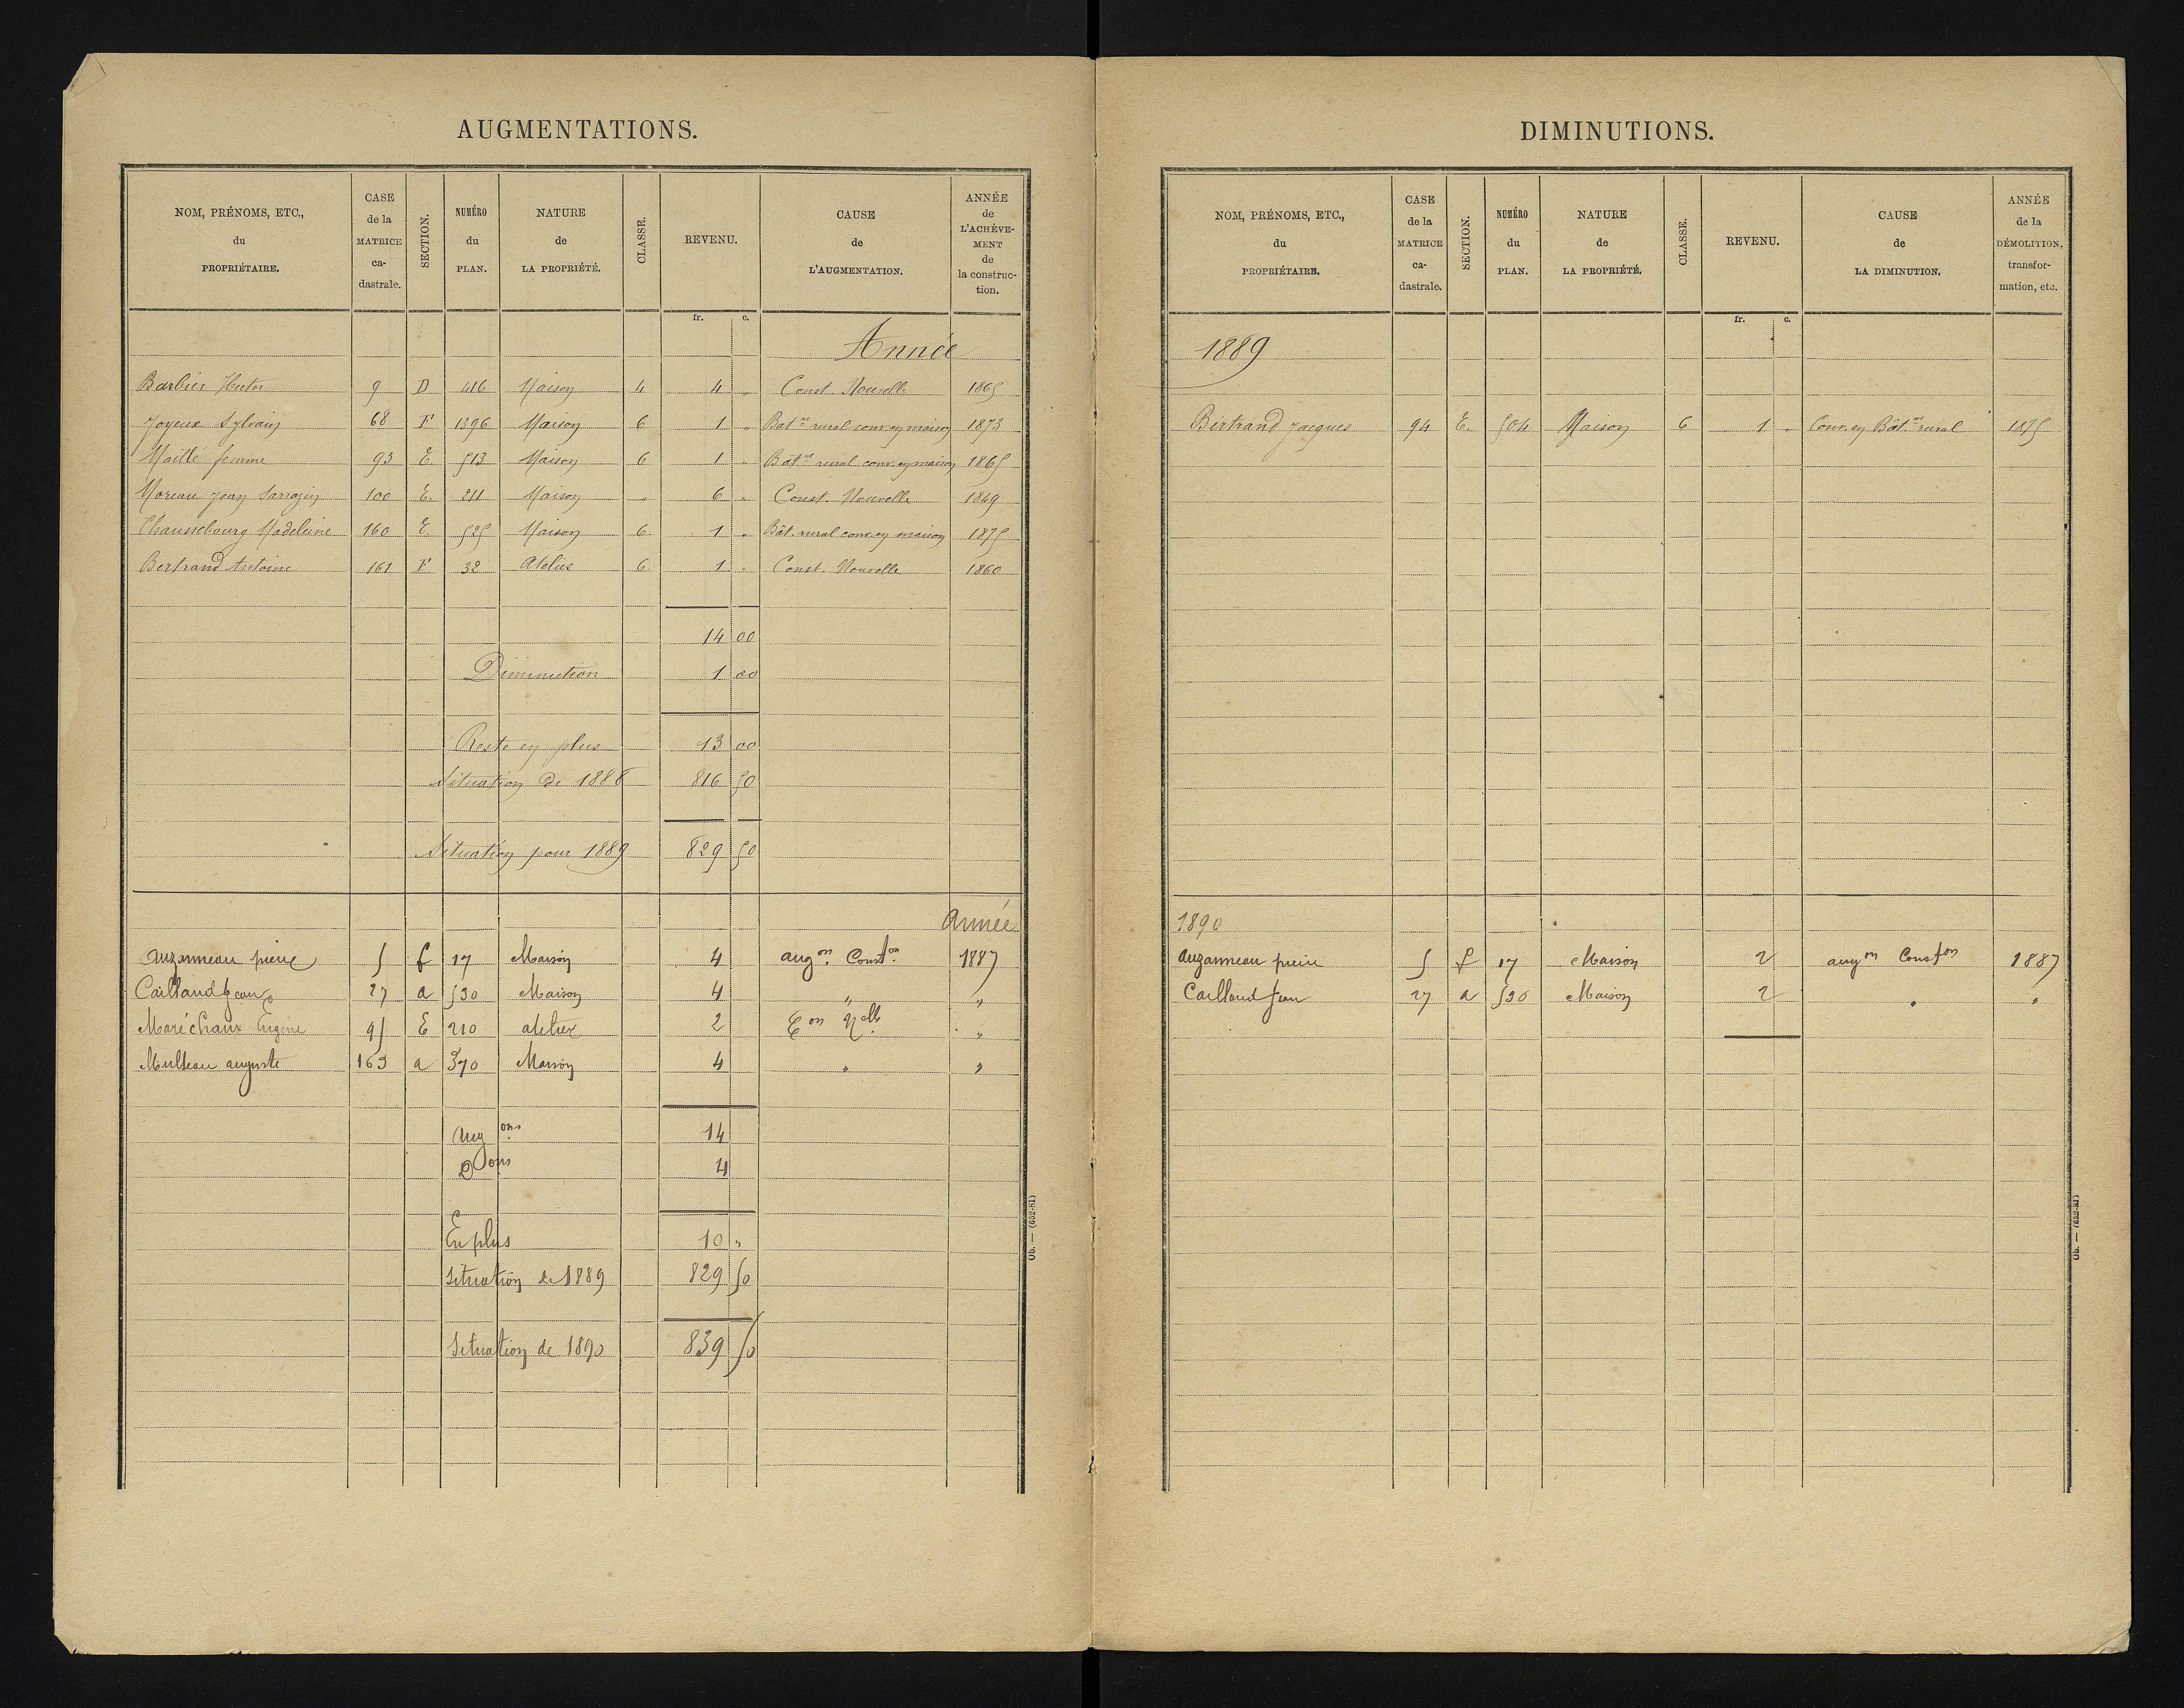 AUGMENTATIONS.
NOM, PRÉNOMS, ETC., du PROPRIÉTAIRE. | CASE de la MATRICE ca-dastrale. | SECTION. | NUMÉRO du PLAN. | NATURE de LA PROPRIÉTÉ. | CLASSE. | REVENU. | CAUSE de L'AUGMENTATION. | ANNÉE de L'ACHÈVE-MENT de la construc-tion.
fr. c.
Année
Barbier Hector 9 D 416 Maison 4 4 " Const. Nouvelle 1865
Joyeux Sylvain 68 F 1396 Maison 6 1 " Bat.nt rural conv. en maison 1873
Maillé femme 93 E. 513 Maison 6 1 " Bât.nt rural conv. en maison 1865
Moreau Jean Sarrazin 100 E. 211 Maison " 6 " Const. Nouvelle 1849
Chaussebourg Madeleine 160 E. 525 Maison 6 1 " Bât. rural conv. en maison 1875
Bertrand Antoine 161 F 32 Atelier 6 1 " Const. Nouvelle 1860
14 00
Diminution 1 00
Reste en plus 13 00
Situation de 1888 816 50
Situation pour 1889 829 50
Année
Auzanneau pierre 5 f 17 Maison 4 augon Conston 1887
Caillaud Jean 27 a 530 Maison 4 " "
Maréchaux Eugène 95 E 210 atelier 2 Con Nelle "
Multeau auguste 163 a 370 Maison 4 " "
Augons 14
Dons 4
En plus 10 "
Situation de 1889 829 50
Situation de 1890 839 50
Ob. — (652-81)
DIMINUTIONS.
NOM, PRÉNOMS, ETC., du PROPRIÉTAIRE. | CASE de la MATRICE ca-dastrale. | SECTION. | NUMÉRO du PLAN. | NATURE de LA PROPRIÉTÉ. | CLASSE. | REVENU. | CAUSE de LA DIMINUTION. | ANNÉE de la DÉMOLITION, transfor-mation, etc.
fr. c.
1889
Bertrand Jacques 94 E. 504 Maison 6 1 " Conv. en Bât.nt rural 1875
1890
Auzanneau pierre 5 f 17 Maison 2 augon Conston 1887
Caillaud Jean 27 a 530 Maison 2 " "
Ob. — (652-81)